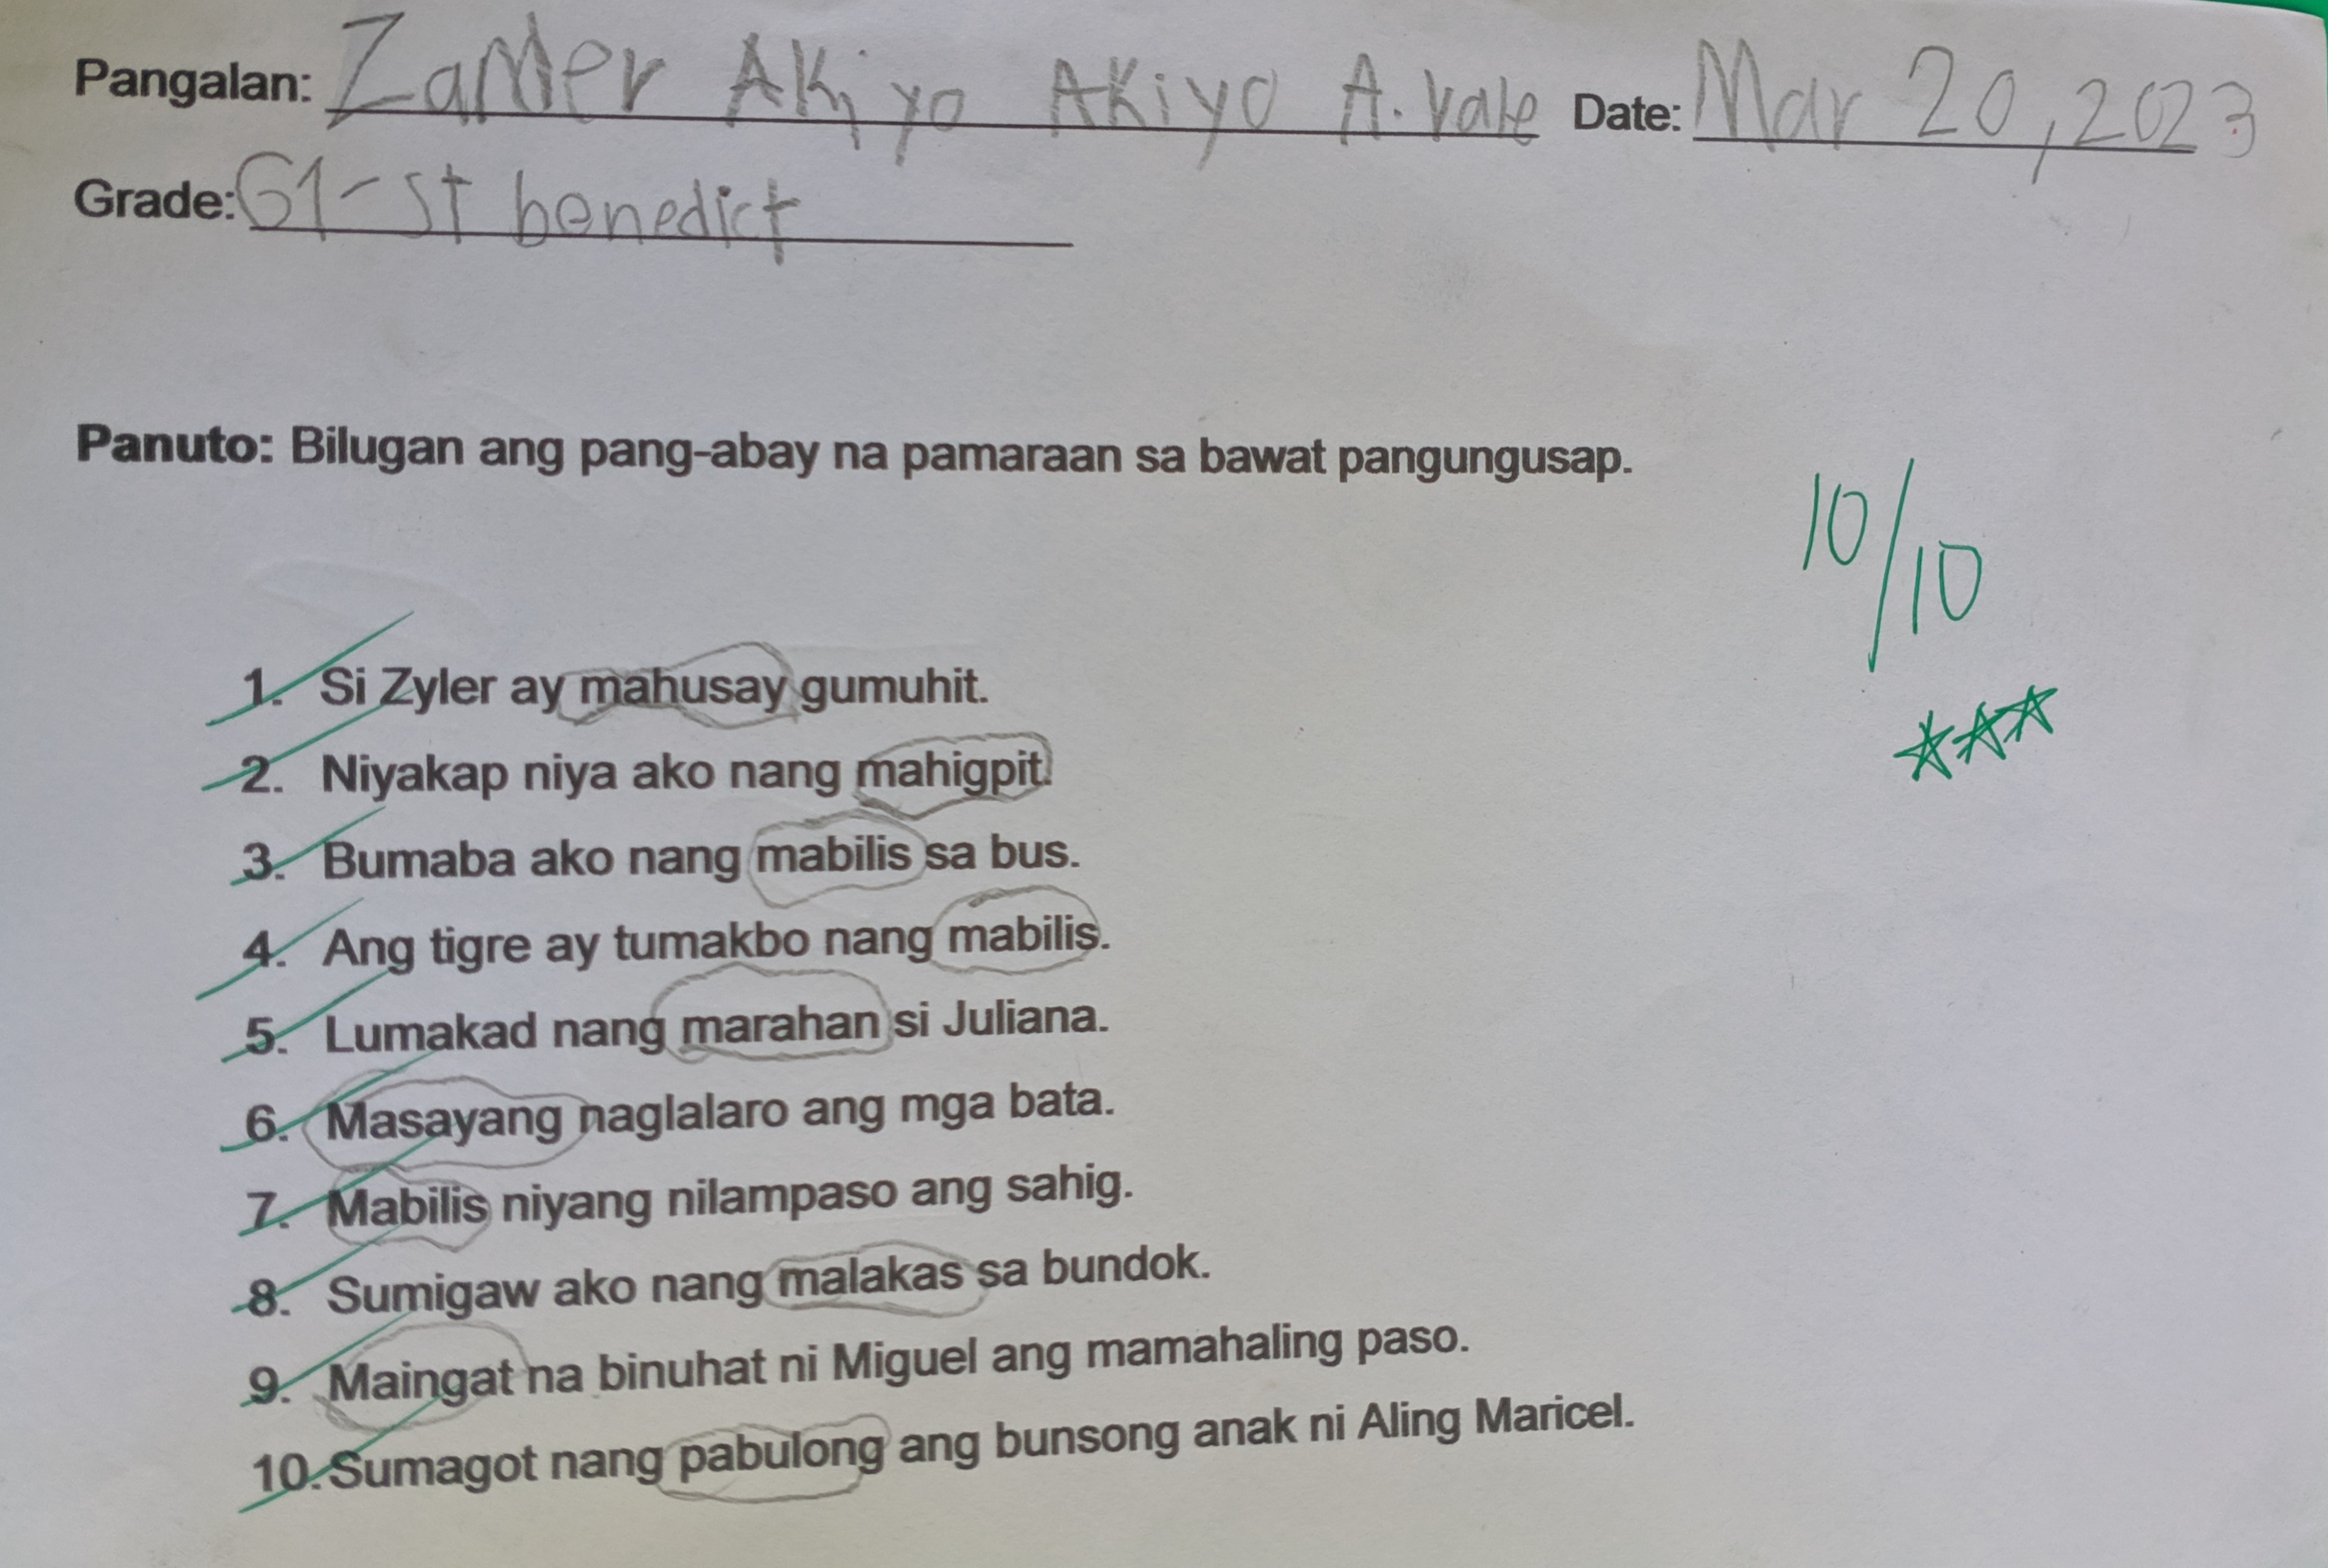 Pangalan: Zander Akiyo Akiyo A. Vale Date: Mar 20, 2023
Grade: G1-St benedict
Panuto: Bilugan ang pang-abay na pamaraan sa bawat pangungusap.
10/10
1. Si Zyler ay mahusay gumuhit.
2. Niyakap niya ako nang mahigpit.
3. Bumaba ako nang mabilis sa bus.
4. Ang tigre ay tumakbo nang mabilis.
5. Lumakad nang marahan si Juliana.
6. Masayang naglalaro ang mga bata.
7. Mabilis niyang nilampaso ang sahig.
8. Sumigaw ako nang malakas sa bundok.
9. Maingat na binuhat ni Miguel ang mamahaling paso.
10. Sumagot nang pabulong ang bunsong anak ni Aling Maricel.